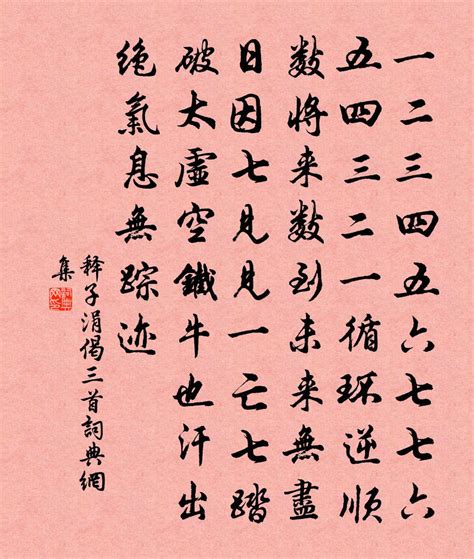 一二三四五六七七六
五四三二一循环逆順
数将来数到未来無盡
日因七見見一亡七踏
破太虛空鐵牛也汗出
絶氣息無踪迹
释子涓偈三首詞典網
集